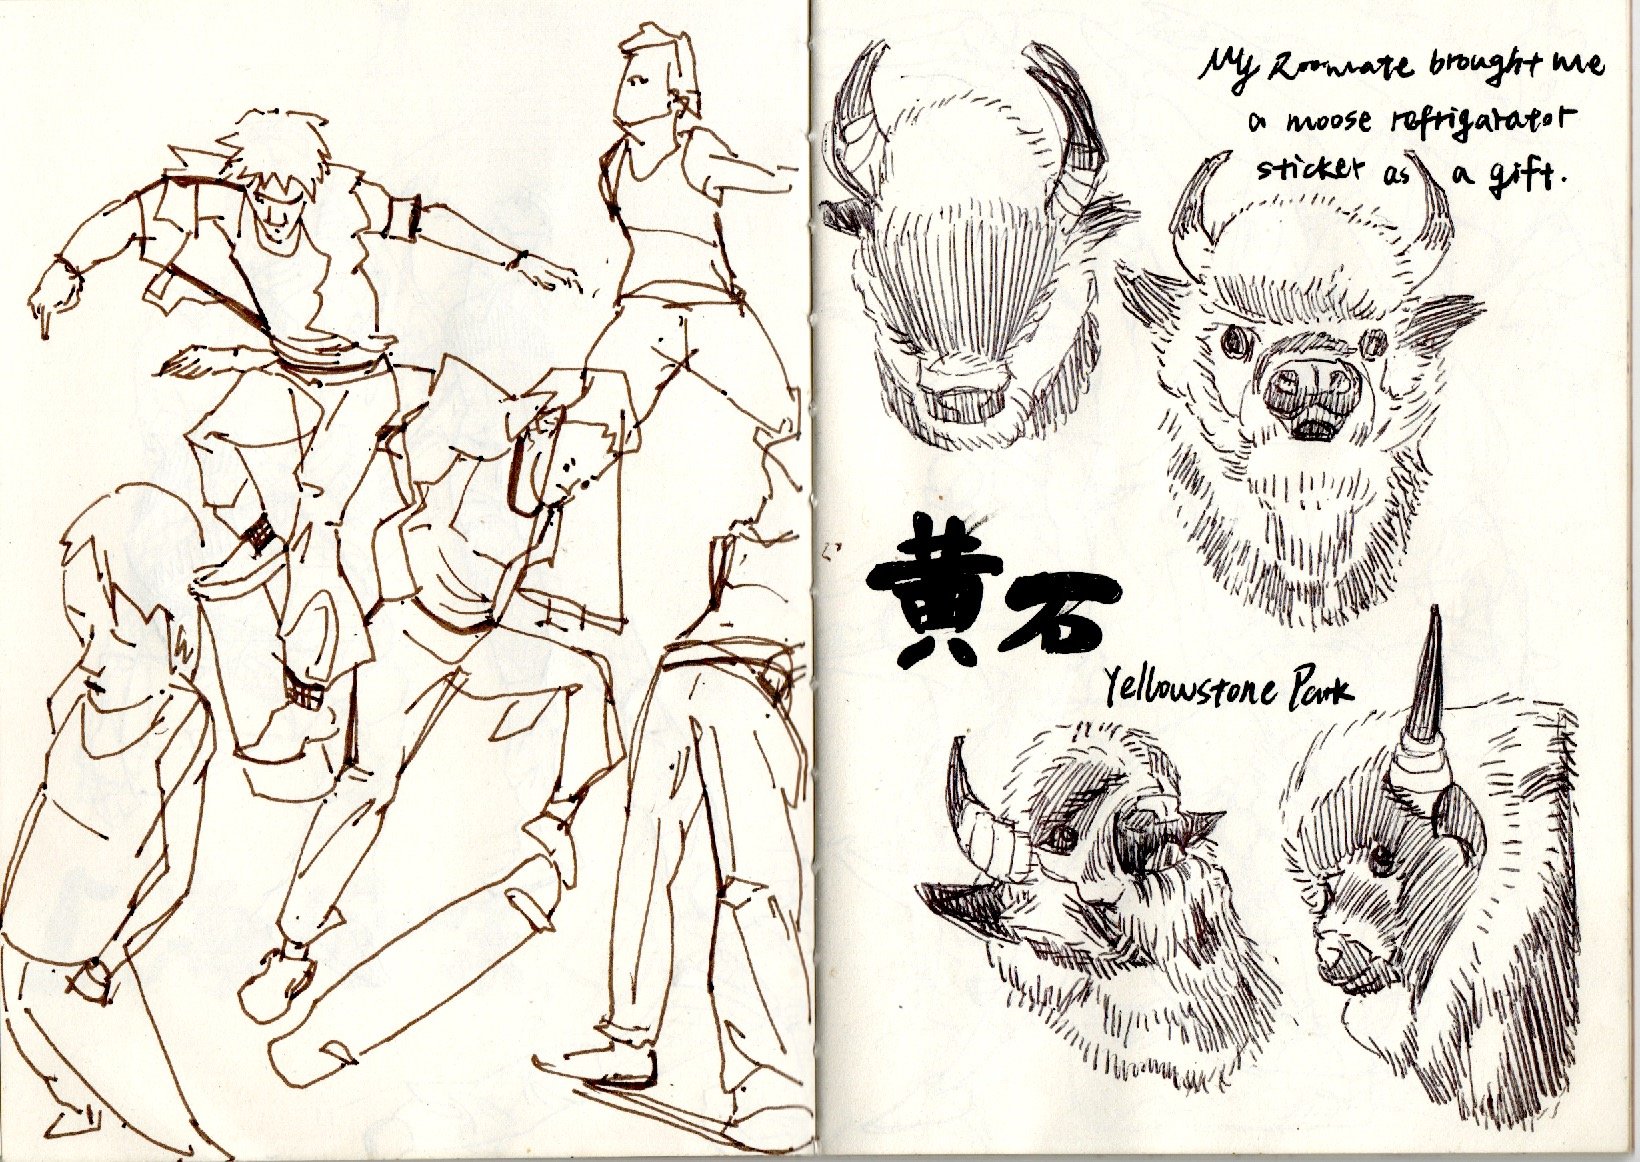 My Roomate brought me
a moose refrigarator
sticker as a gift.
黄石
Yellowstone Park